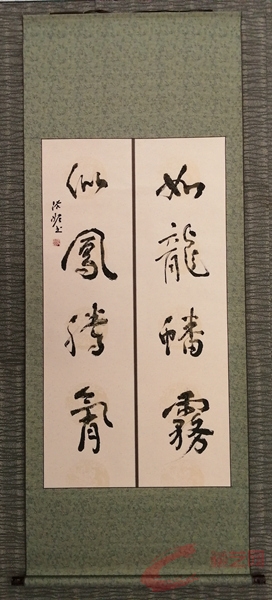 如龍蟠霧
似鳳騰霄